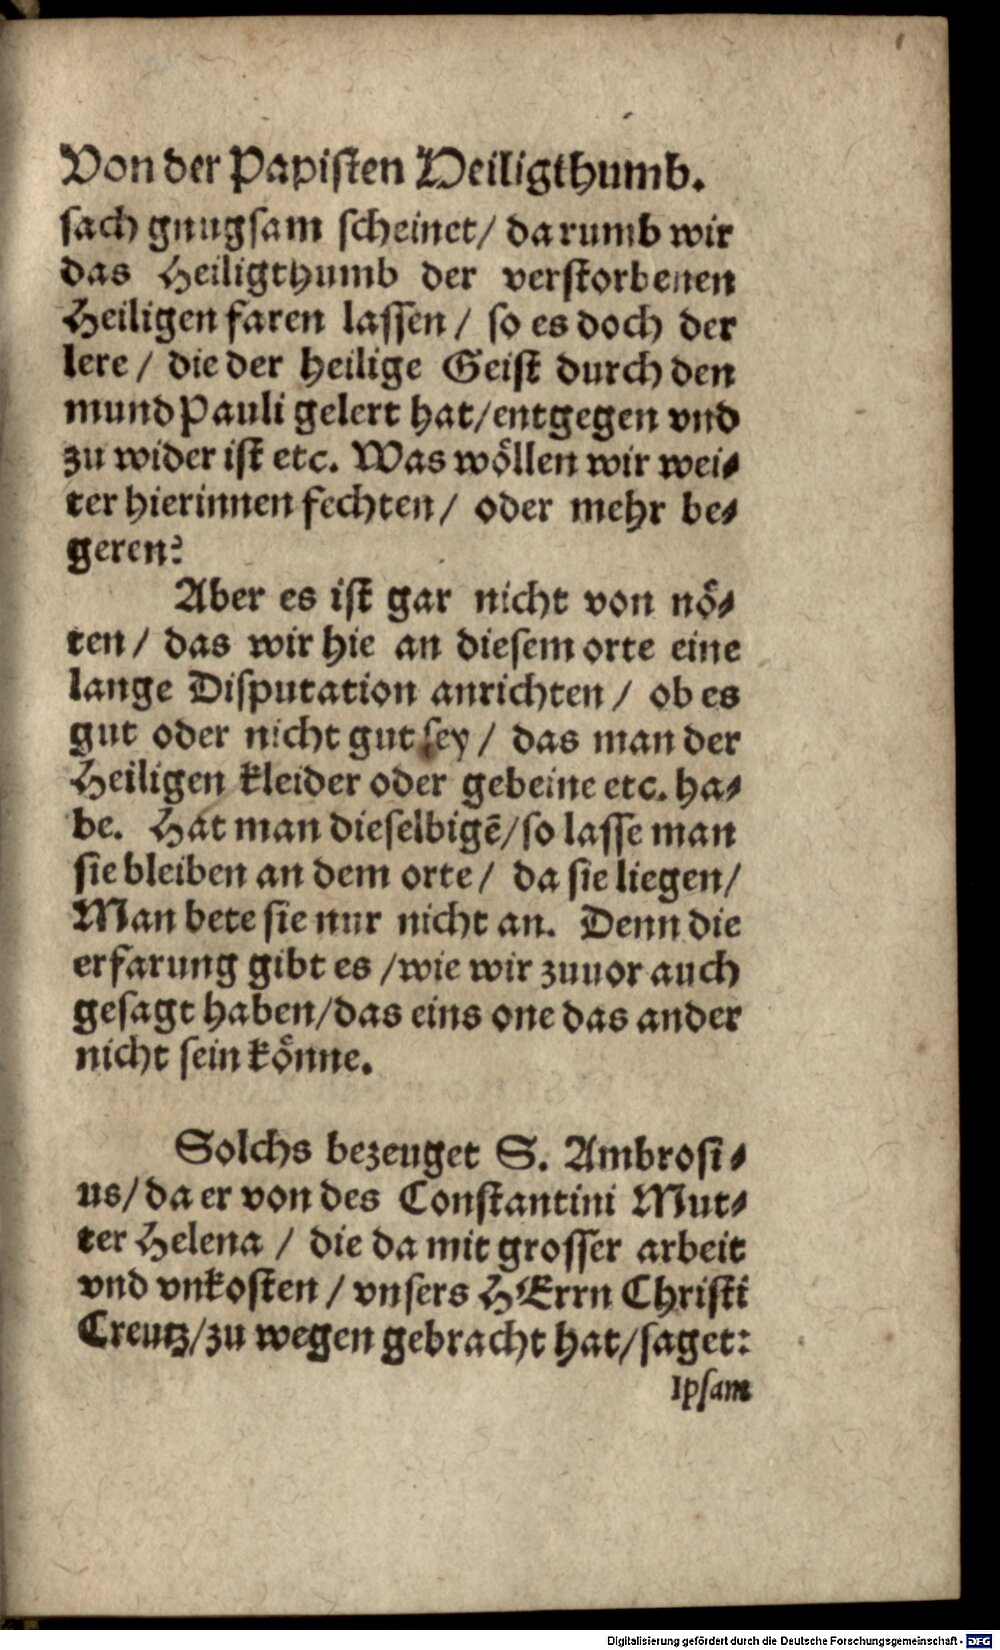 Von der Papisten Heiligthumb.
sach gnugsam scheinet/ darumb wir
das Heiligthumb der verstorbenen
Heiligen faren lassen / so es doch der
lere / die der heilige Geist durch den
mund Pauli gelert hat/entgegen vnd
zu wider ist etc. Was wöllen wir wei⸗
ter hierinnen fechten / oder mehr be⸗
geren?
Aber es ist gar nicht von nö⸗
ten / das wir hie an diesem orte eine
lange Disputation anrichten / ob es
gut oder nicht gut sey / das man der
Heiligen kleider oder gebeine etc. ha⸗
be. Hat man dieselbigē/so lasse man
sie bleiben an dem orte / da sie liegen/
Man bete sie nur nicht an. Denn die
erfarung gibt es /wie wir zuuor auch
gesagt haben/das eins one das ander
nicht sein könne.
Solchs bezeuget S. Ambrosi⸗
us/da er von des Constantini Mut⸗
ter Helena / die da mit grosser arbeit
vnd vnkosten / vnsers HErrn Christi
Creutz/zu wegen gebracht hat/saget:
Ipsam
Digitalisierung gefördert durch die Deutsche Forschungsgemeinschaft - DFG